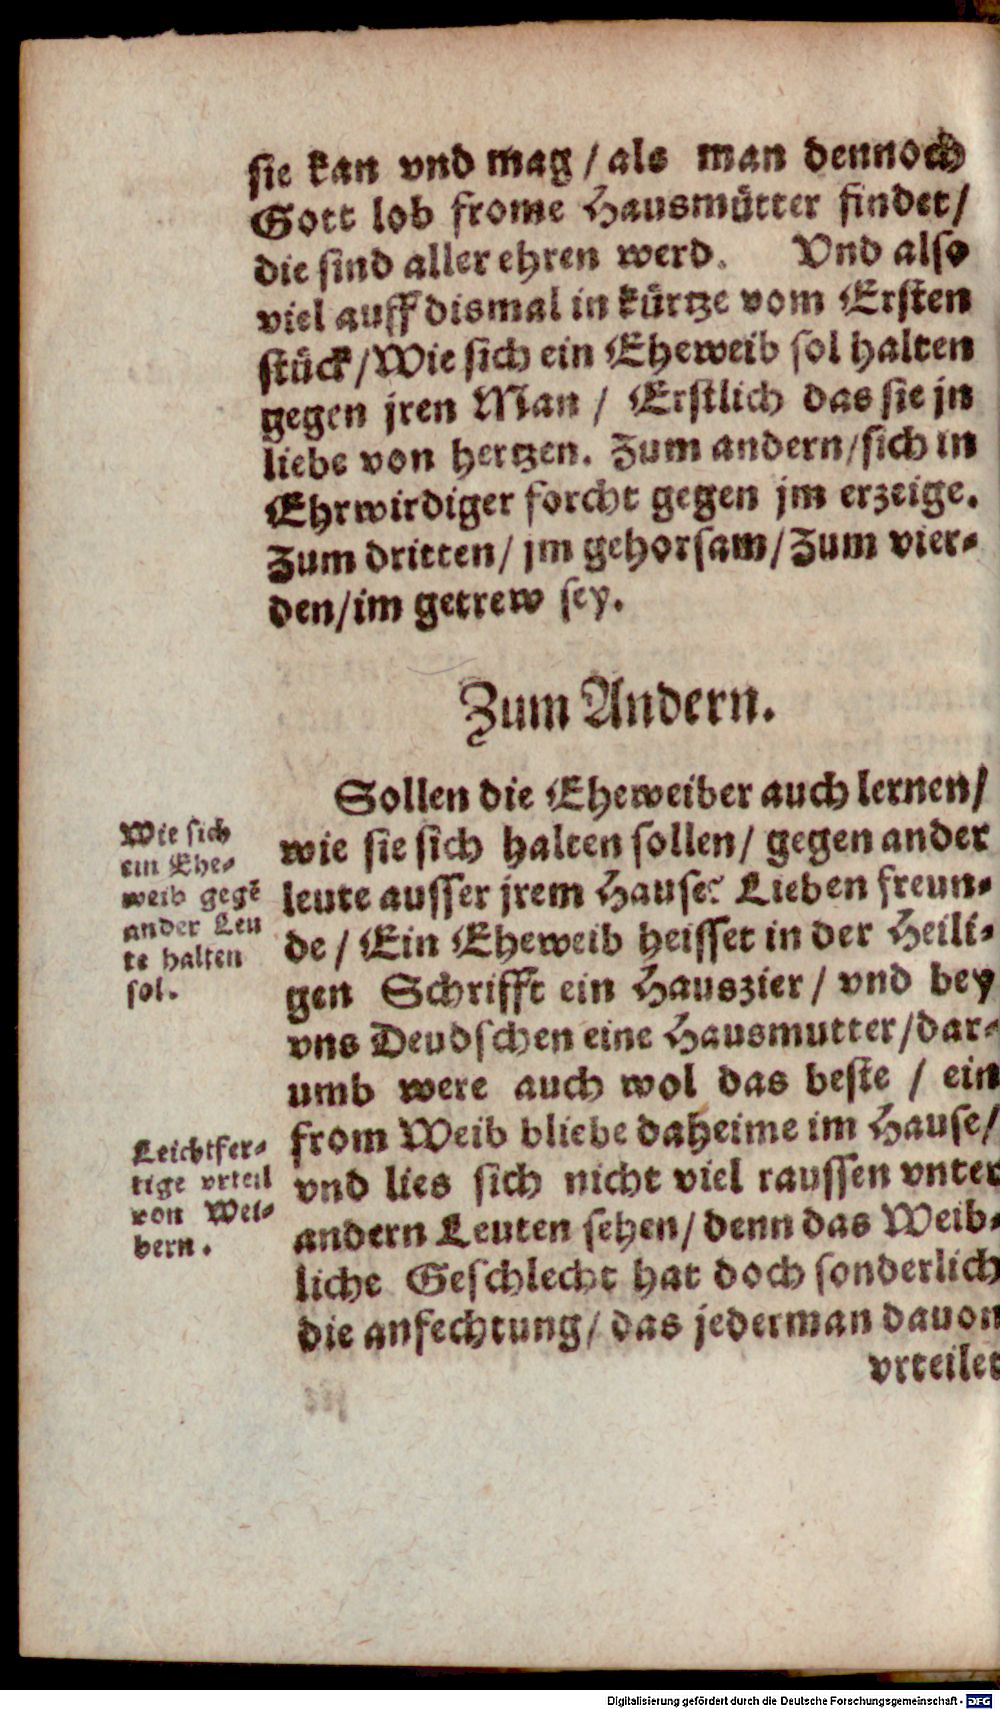 sie kan vnd mag / als man dennoch
Gott lob frome Hausmütter findet/
die sind aller ehren werd. Vnd also
viel auff dismal in kürtze vom Ersten
stück/Wie sich ein Eheweib sol halten
gegen jren Man / Erstlich das sie jn
liebe von hertzen. Zum andern/sich in
Ehrwirdiger forcht gegen jm erzeige.
Zum dritten/ jm gehorsam/Zum vier-
den/im getrew sey.
Zum Andern.
Sollen die Eheweiber auch lernen/
wie sie sich halten sollen/ gegen ander
leute ausser jrem Hause. Lieben freun-
de / Ein Eheweib heisset in der Heili-
gen Schrifft ein Hauszier / vnd bey
vns Deudschen eine Hausmutter/dar-
umb were auch wol das beste / ein
from Weib bliebe daheime im Hause/
vnd lies sich nicht viel raussen vnter
andern Leuten sehen/ denn das Weib-
liche Geschlecht hat doch sonderlich
die anfechtung/ das jederman dauon
vrteilet
Wie sich
ein Ehe-
weib gegē
ander Leu
te halten
sol.
Leichtfer-
tige vrteil
von Wei-
bern.
Digitalisierung gefördert durch die Deutsche Forschungsgemeinschaft - DFG